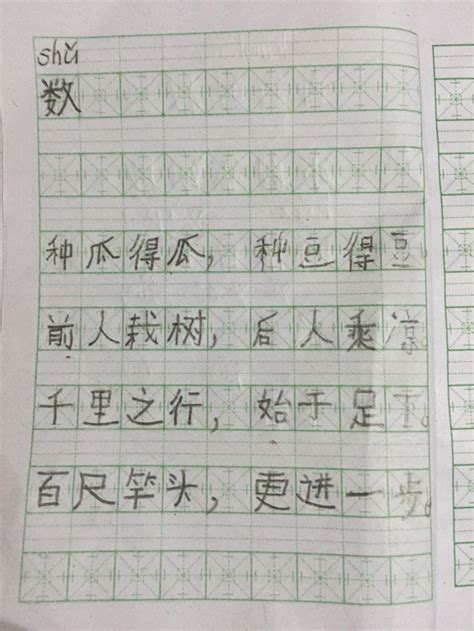 shǔ
数
种瓜得瓜，种豆得豆。
前人栽树，后人乘凉。
千里之行，始于足下。
百尺竿头，更进一步。